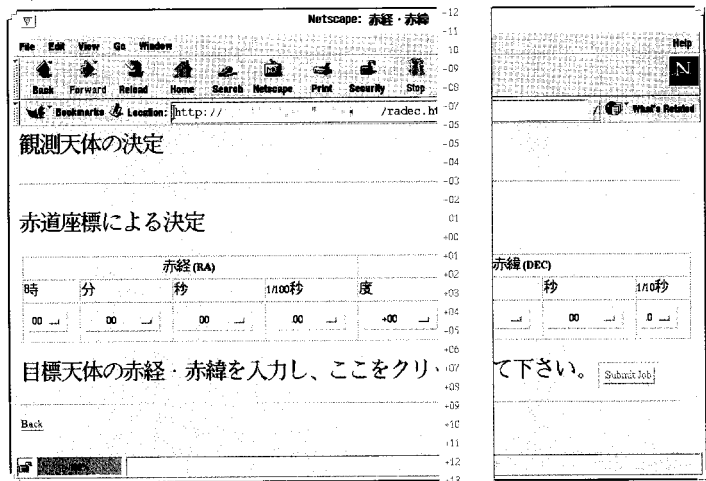 Netscape: 赤経・赤緯
File Edit View Go Window Help
Back Forward Reload Home Search Netscape Print Security Stop
Bookmarks Location: http:// /radec.ht What's Related
観測天体の決定
赤道座標による決定
赤経(RA) 赤緯(DEC)
時 分 秒 1/100秒 度 秒 1/10秒
00 00 00 00 +00 00 0
目標天体の赤経・赤緯を入力し、ここをクリッ て下さい。 Submit Job
Back
-12
-11
10
-09
-08
-07
-05
-05
-04
-03
-02
01
+00
+01
+02
+03
+04
-05
+06
+07
+09
+09
+10
+11
+12